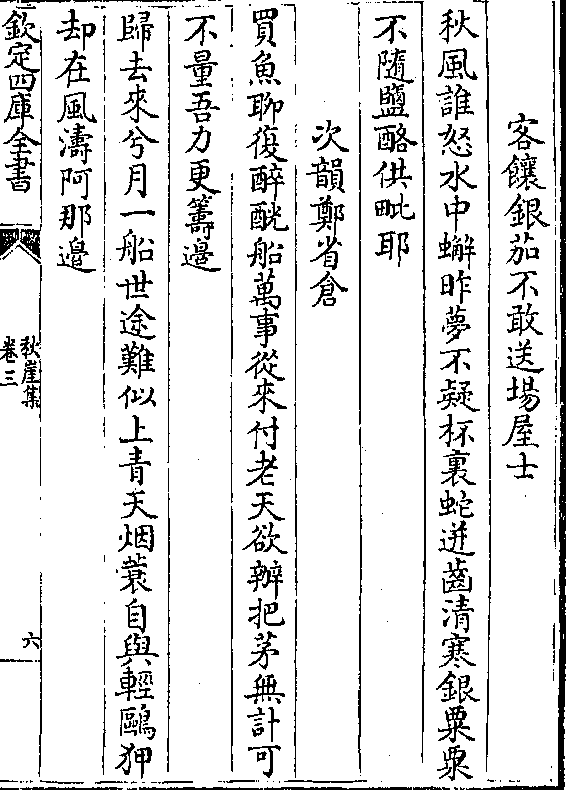 客饟銀茄不敢送塲屋士
秋風誰怒水中蠏昨夢不疑杯裏蛇迸齒清寒銀粟粟
不隨鹽酪供毗耶
次韻鄭省倉
買魚聊復醉觥船萬事從來付老天欲辦把茅無計可
不量吾力更籌邊
歸去來兮月一船世途難似上青天烟蓑自與輕鷗狎
却在風濤阿那邊
欽定四庫全書
秋崖集
卷三
六